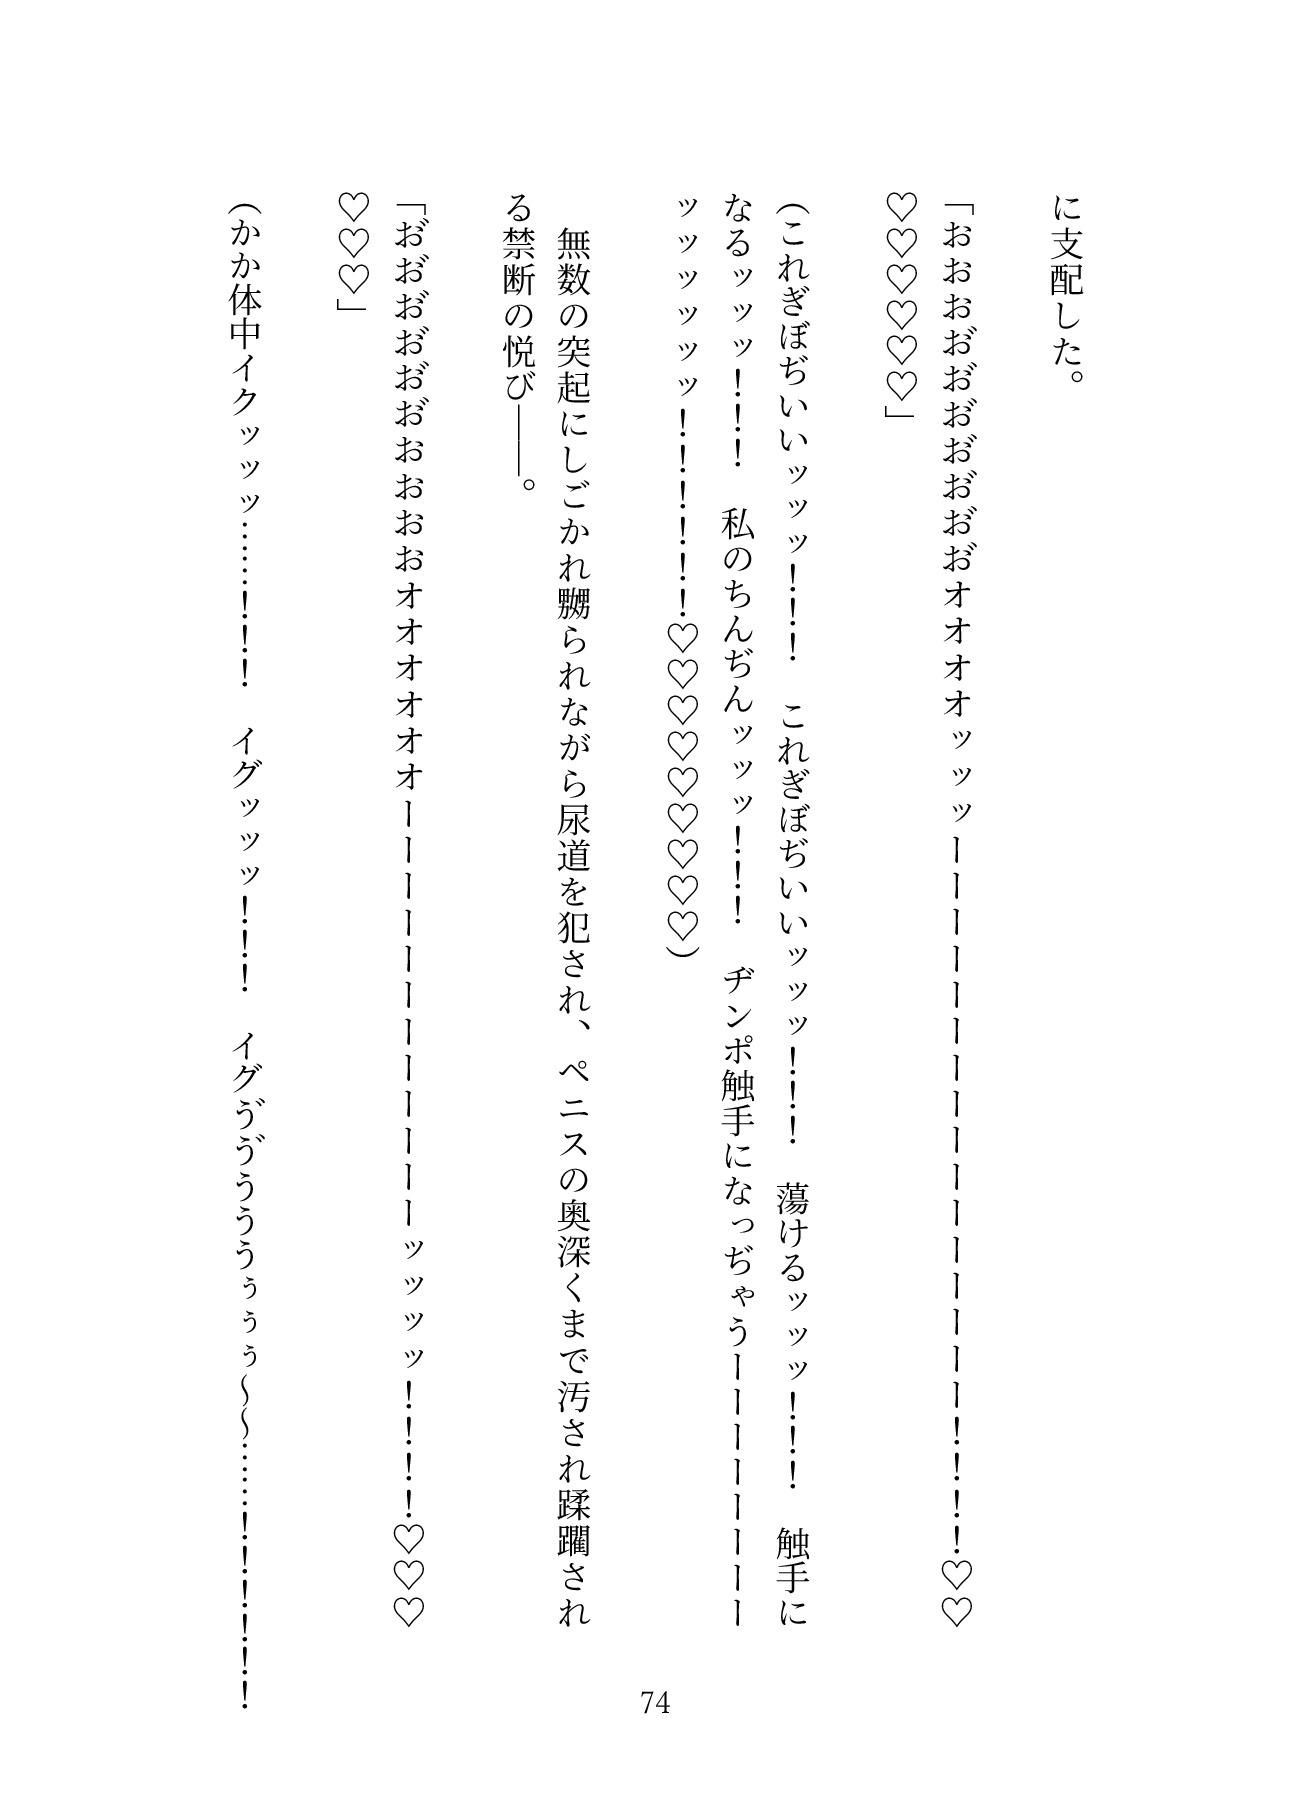 に支配した。
「おおおお゛お゛お゛お゛お゛お゛お゛オオオオッッッーーーーーーーーーーーーーーーー！！！！♡♡
♡♡♡♡♡♡」
（これぎぼぢいいッッッ！！！　これぎぼぢいいッッッ！！！　蕩けるッッッ！！！　触手に
なるッッッ！！！　私のちんぢんッッッ！！！　ヂンポ触手になっぢゃうーーーーーーーー
ッッッッッッ！！！！！！♡♡♡♡♡♡♡♡♡）
　無数の突起にしごかれ嬲られながら尿道を犯され、ペニスの奥深くまで汚され蹂躙され
る禁断の悦び――。
「お゛お゛お゛お゛お゛お゛おおおおオオオオオオーーーーーーーーーーーーッッッッ！！！！♡♡♡
♡♡♡」
（かか体中イクッッッ……！！！　イグッッッ！！！　イグゔゔうううぅぅぅ～～……！！！！！！
74